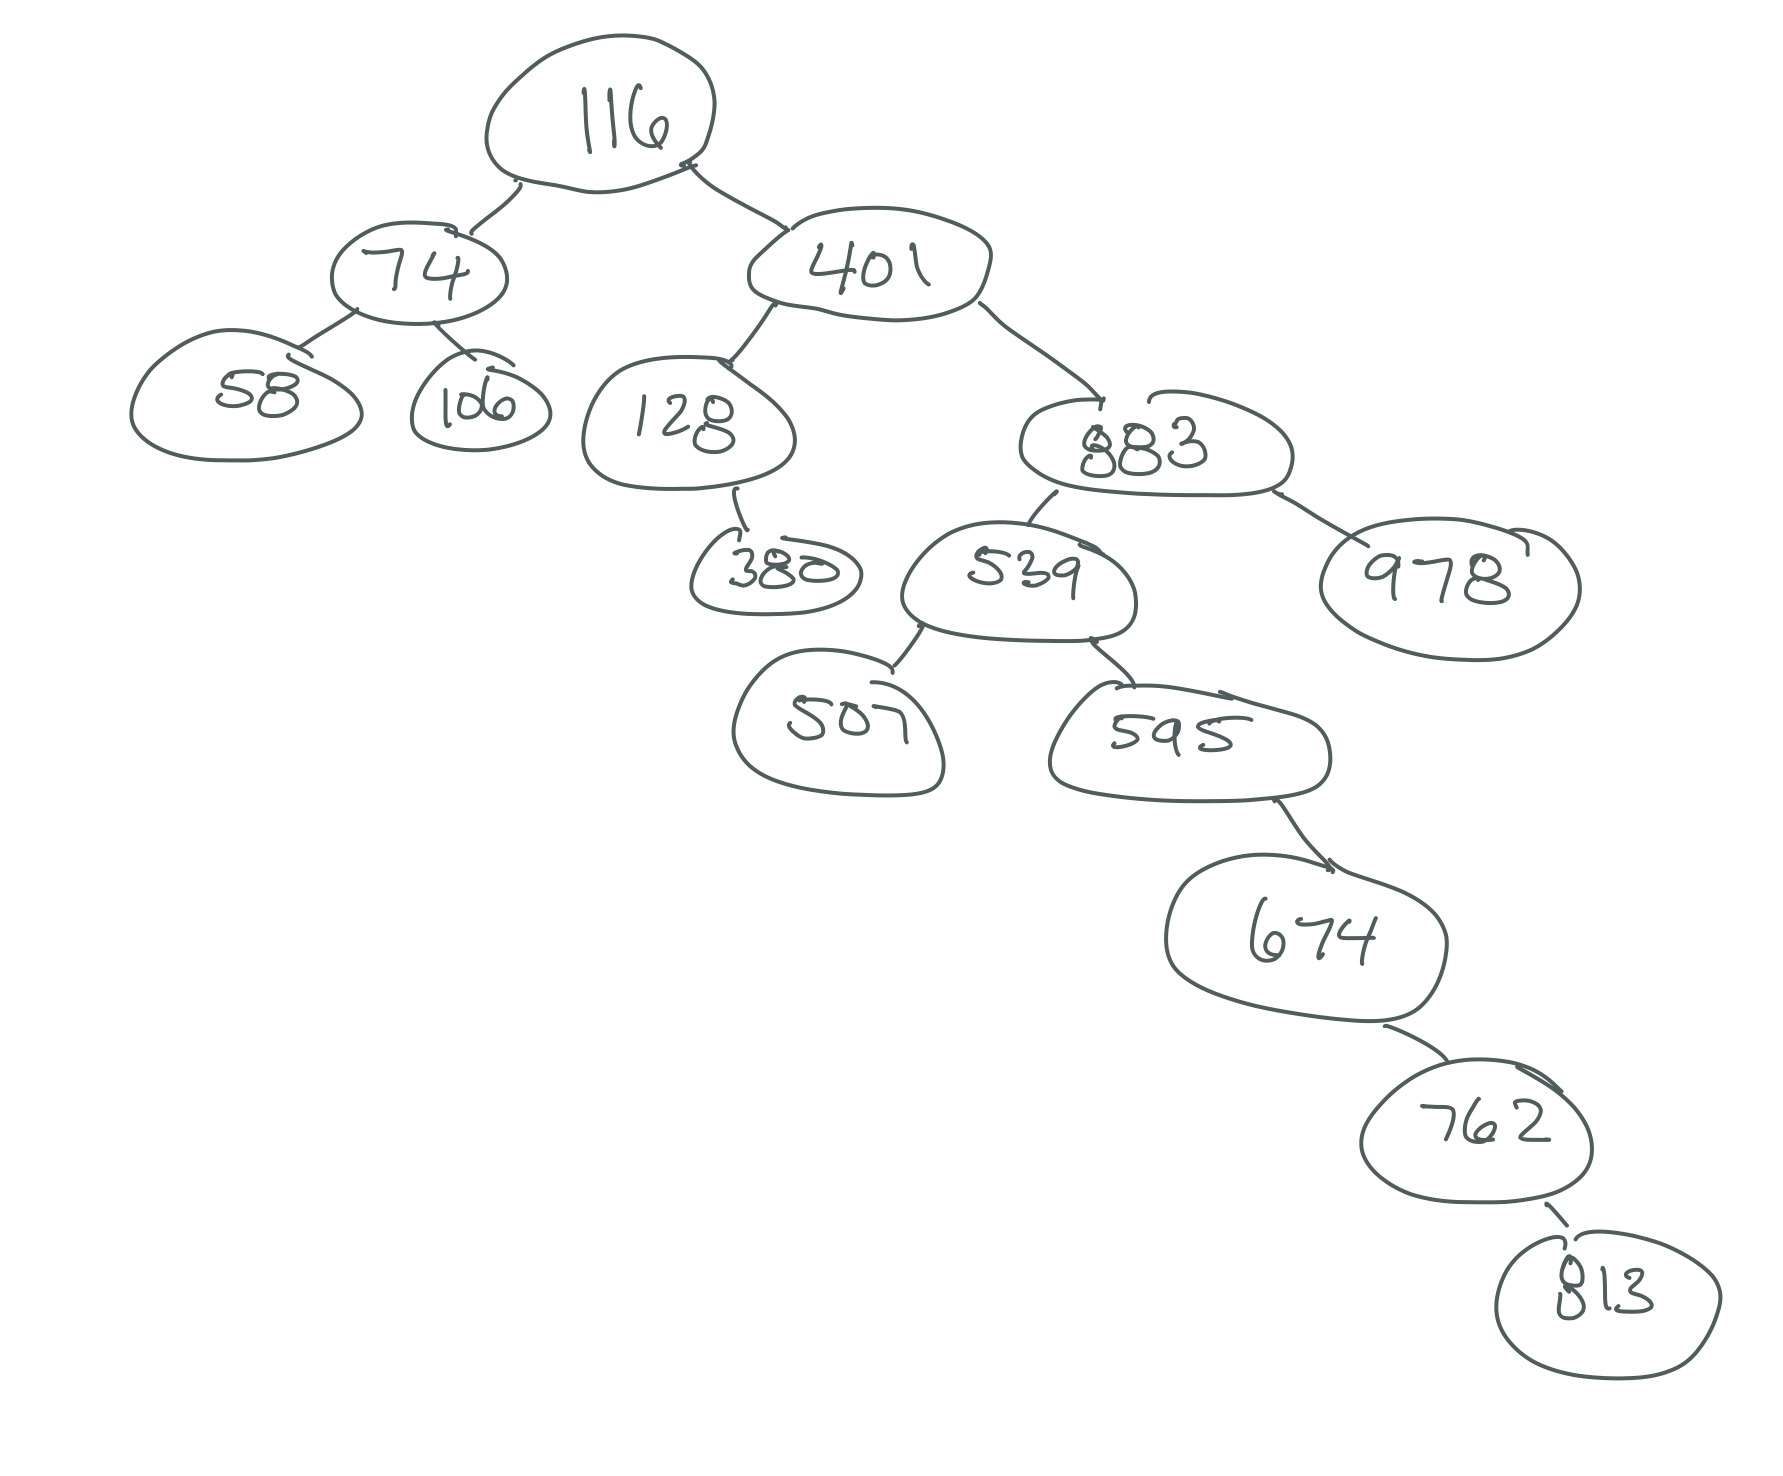 116
74
401
58
106
128
883
380
539
978
507
595
674
762
813